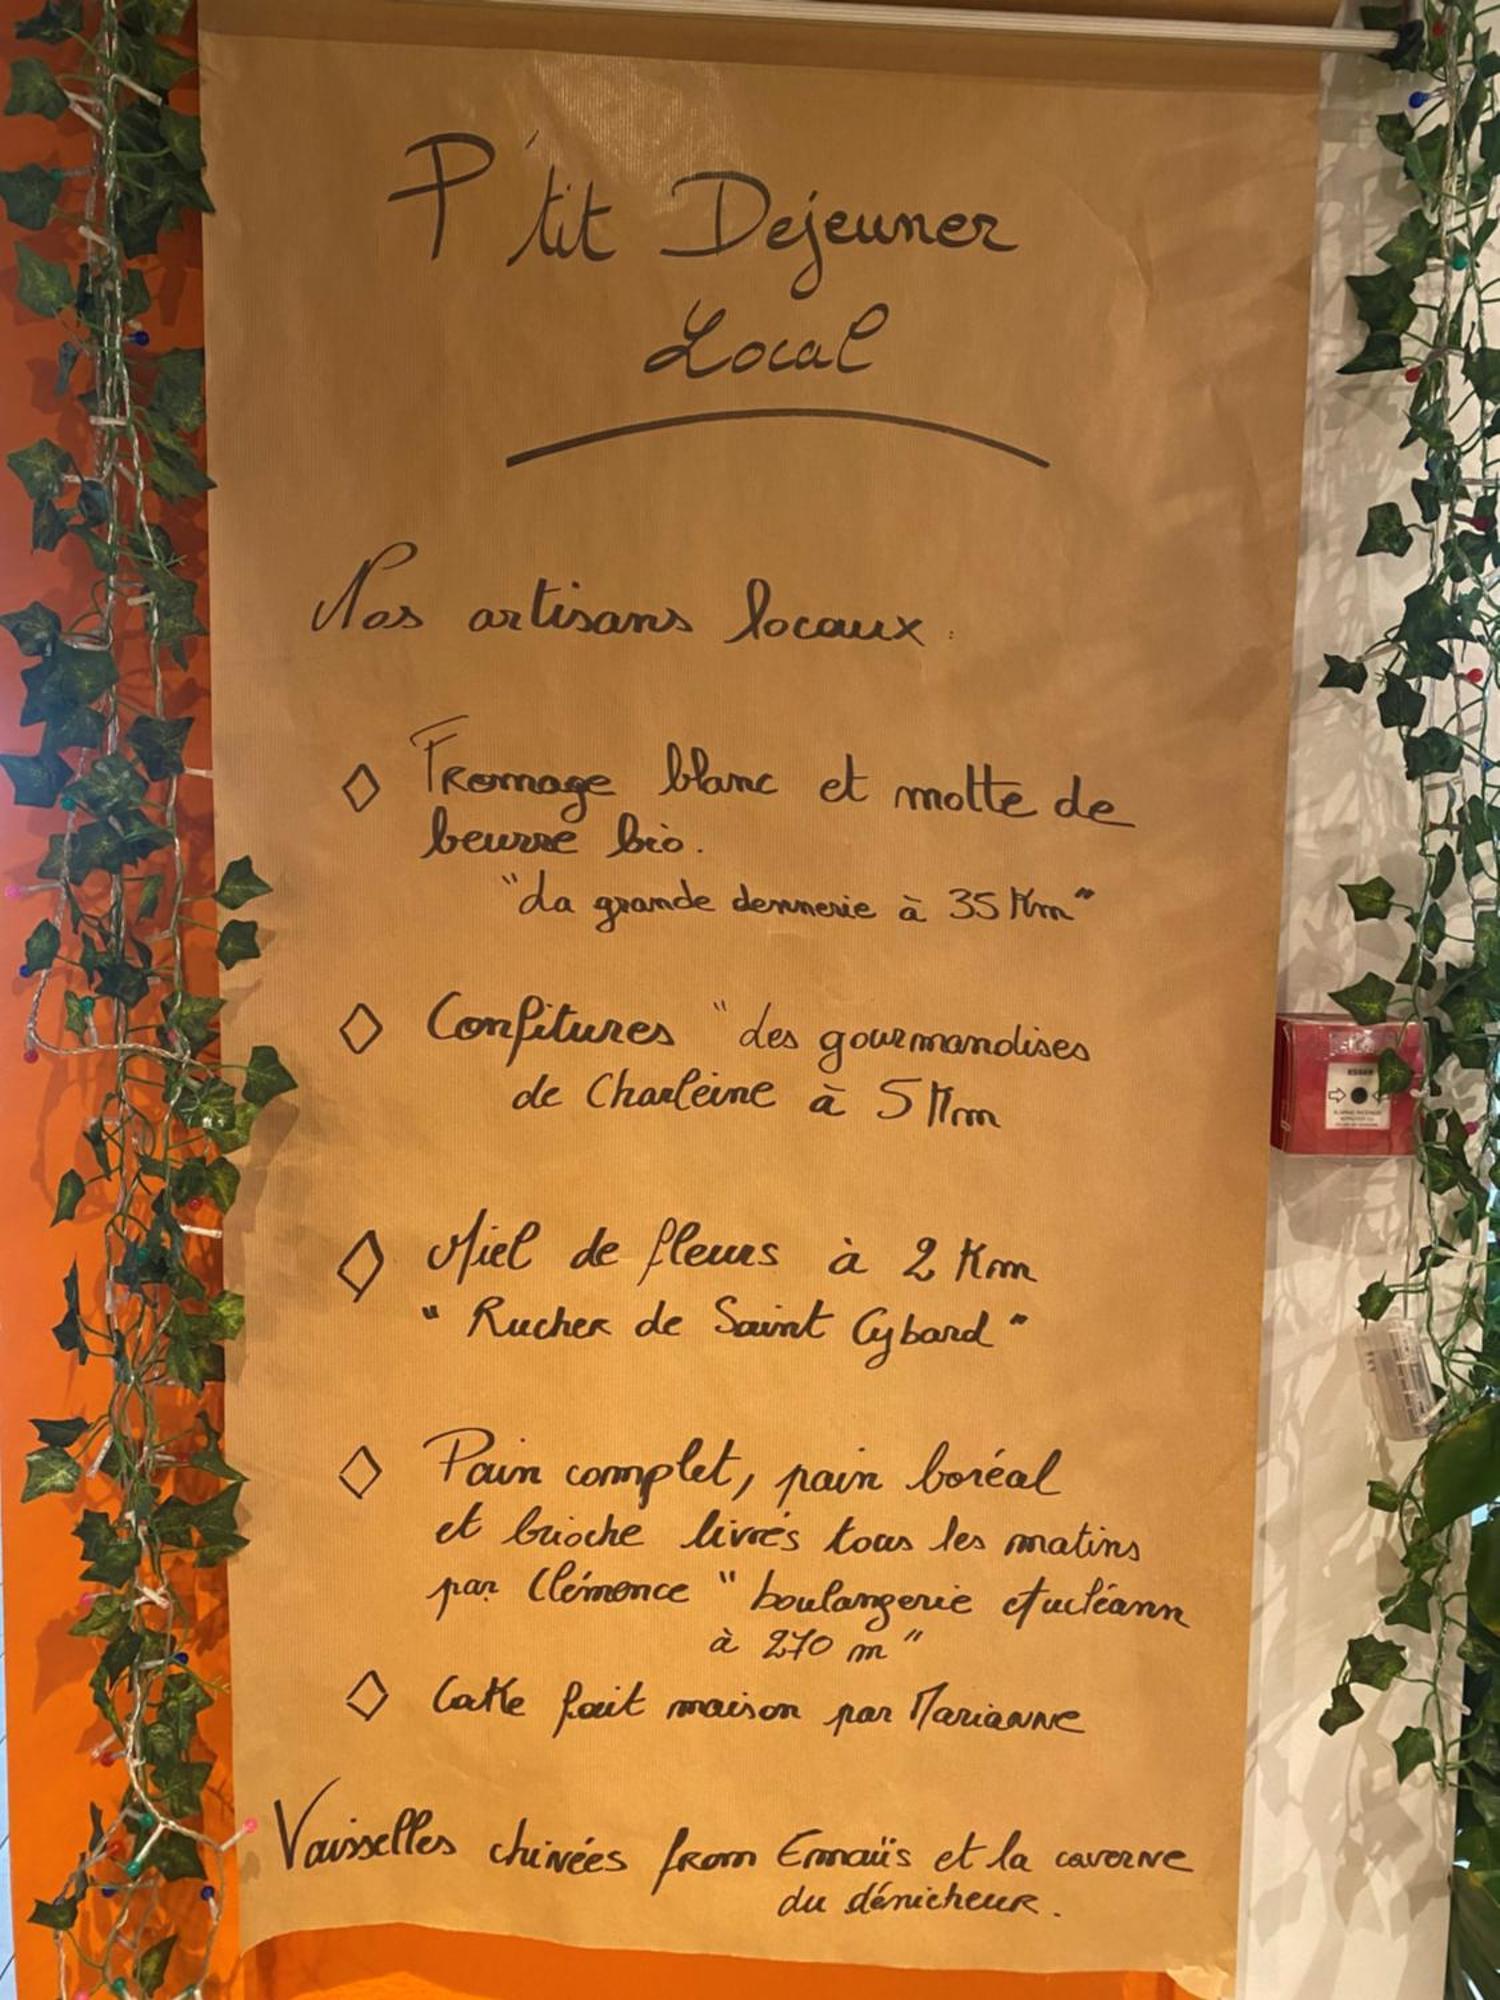 P'tit Dejeuner
Local
Nos artisans locaux :
Fromage blanc et motte de
beurre bio.
"La grande dennerie à 35 Km"
Confitures "des gourmandises
de Charleine à 5 Km
Miel de fleurs à 2 Km
" Rucher de Saint Cybard "
Pain complet, pain boréal
et brioche livrés tous les matins
par Clémence " boulangerie
à 270 m "
Cake fait maison par Marianne
Vaisselles chinées from Emaüs et la caverne
du dénicheur.